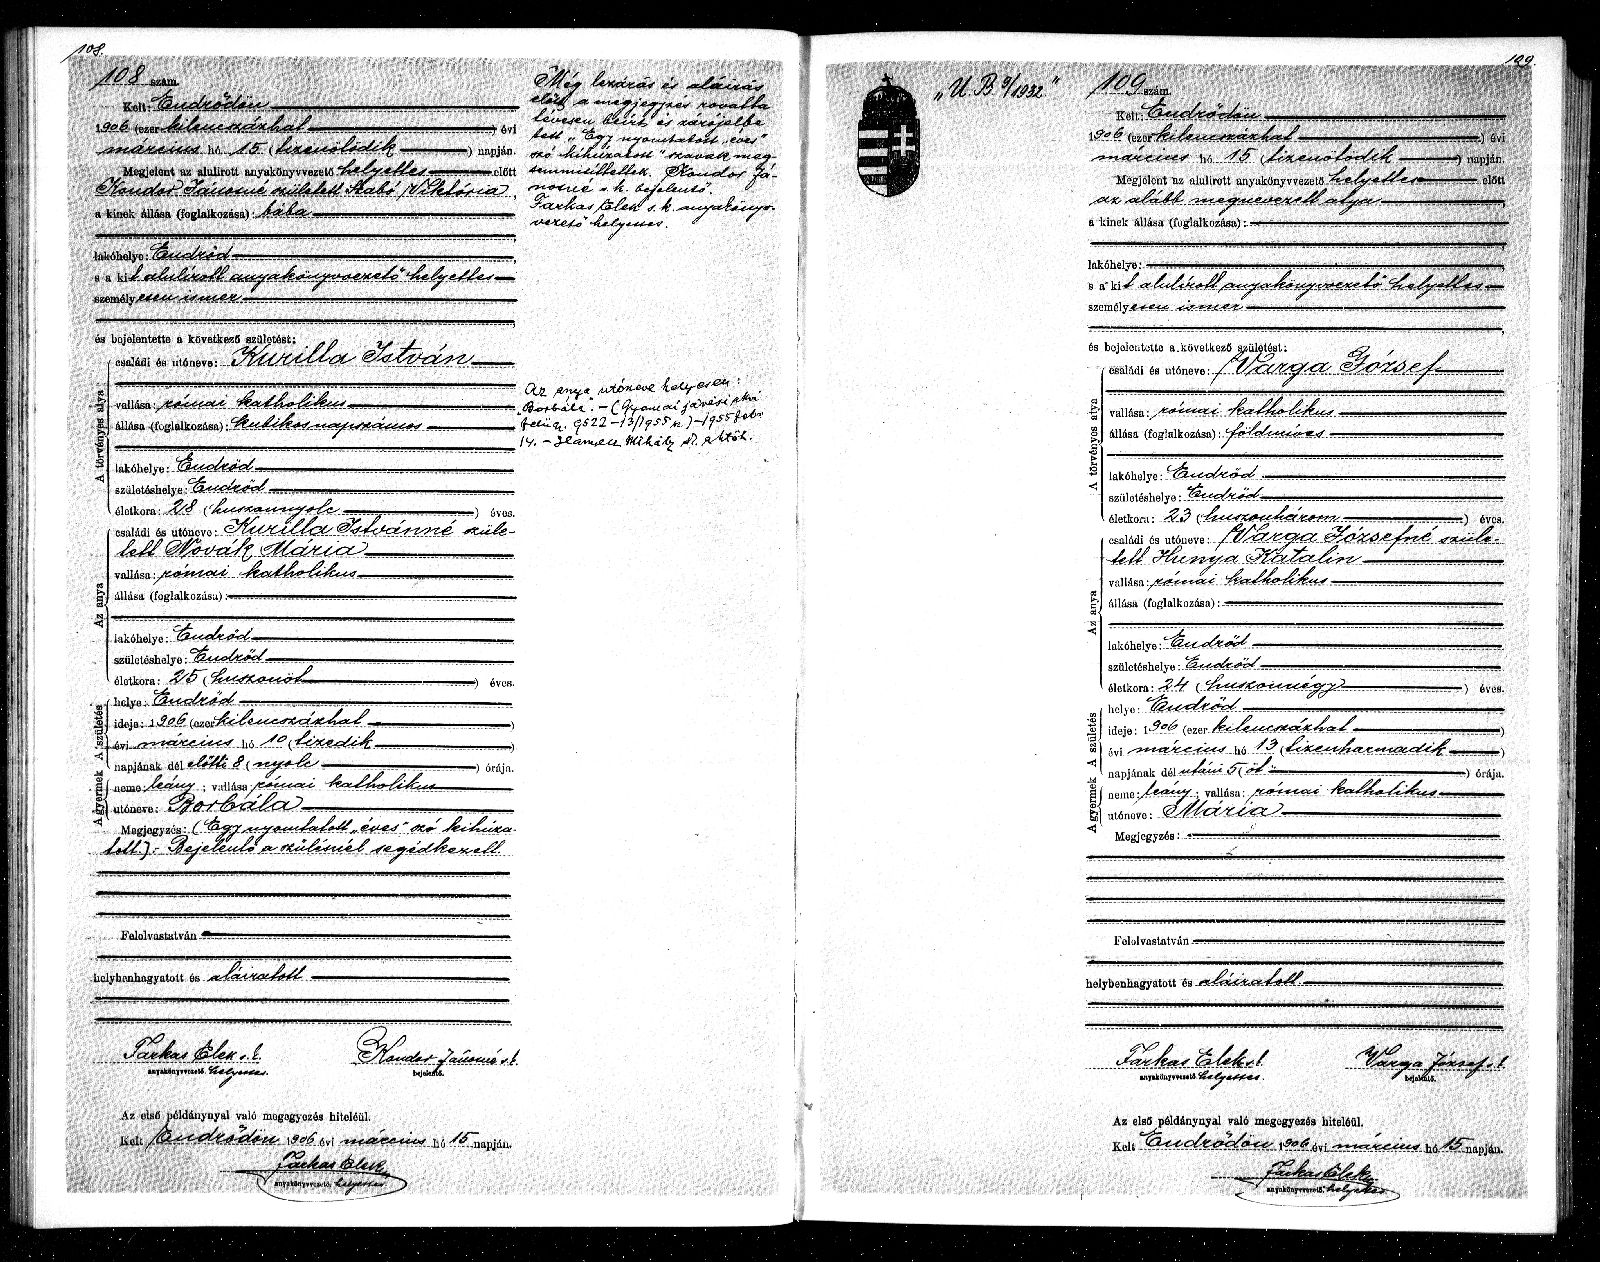 108.
108 szám.
Kelt: Endrődön
1906 (ezer kilenczázhat) évi
március hó 15 (tizenötödik) napján.
Megjelent az alulirott anyakönyvvezető helyettes előtt
Kondor Jánosné született Szabó Viktória,
a kinek állása (foglalkozása): bába
lakóhelye: Endrőd
s a kit alulírott anyakönyvvezető helyettes
személyesen ismer
és bejelentette a következő születést:
A törvényes atya
családi és utóneve: Kurilla István
vallása: római katholikus
állása (foglalkozása): kubikosnapszámos
lakóhelye: Endrőd
születéshelye: Endrőd
életkora: 28 (huszonnyolc) éves.
Az anya
családi és utóneve: Kurilla Istvánné szüle-
tett Novák Mária
vallása: római katholikus
állása (foglalkozása):
lakóhelye: Endrőd
születéshelye: Endrőd
életkora: 25 (huszonöt) éves.
A születés
helye: Endrőd
ideje: 1906 (ezer kilenczázhat)
évi március hó 10 (tizedik)
napjának dél előtti 8 (nyolc) órája.
A gyermek
neme: leány; vallása: római katholikus
utóneve: Borbála
Megjegyzés: (Egy nyomtatott „éves" szó kihúza-
tott.) - Bejelentő a szülésnél segédkezett.
Felolvastatván
helybenhagyatott és aláíratott
Farkas Elek s. k. Kondor Jánosné s. k.
anyakönyvvezető helyettes. bejelentő.
Az első példánynyal való megegyezés hiteléül.
Kelt Endrődön 1906 évi március hó 15 napján.
Farkas Elek
anyakönyvvezető helyettes.
Még lezárás és aláírás
előtt a megjegyzés rovatba
tévesen beírt és zárójelbe
tett „Egy nyomtatott „éves"
szó kihúzatott" szavak meg-
semmisíttettek. Kondor Já-
nosné s. k. bejelentő.
Farkas Elek s. k. anyakönyv-
vezető helyettes.
Az anya utóneve helyesen:
"Borbála". - (Gyomai járási
9522-13/1955 ) - 1955 febr
14. - Mihály
109.
„U. B 9/1932"
109 szám.
Kelt: Endrődön
1906 (ezer kilenczázhat) évi
március hó 15 (tizenötödik) napján.
Megjelent az alulirott anyakönyvvezető helyettes előtt
az alább megnevezett atya
a kinek állása (foglalkozása):
lakóhelye:
s a kit alulírott anyakönyvvezető helyettes
személyesen ismer
és bejelentette a következő születést:
A törvényes atya
családi és utóneve: Varga József
vallása: római katholikus
állása (foglalkozása): földmíves
lakóhelye: Endrőd
születéshelye: Endrőd
életkora: 23 (huszonhárom) éves.
Az anya
családi és utóneve: Varga Józsefné szüle-
tett Hunya Katalin
vallása: római katholikus
állása (foglalkozása):
lakóhelye: Endrőd
születéshelye: Endrőd
életkora: 24 (huszonnégy) éves.
A születés
helye: Endrőd
ideje: 1906 (ezer kilenczázhat)
évi március hó 13 (tizenharmadik)
napjának dél utáni 5 (öt) órája.
A gyermek
neme: leány; vallása: római katholikus
utóneve: Mária
Megjegyzés:
Felolvastatván
helybenhagyatott és aláíratott
Farkas Elek s. k. Varga József s. k.
anyakönyvvezető helyettes. bejelentő.
Az első példánynyal való megegyezés hiteléül.
Kelt Endrődön 1906 évi március hó 15 napján.
Farkas Elek
anyakönyvvezető helyettes